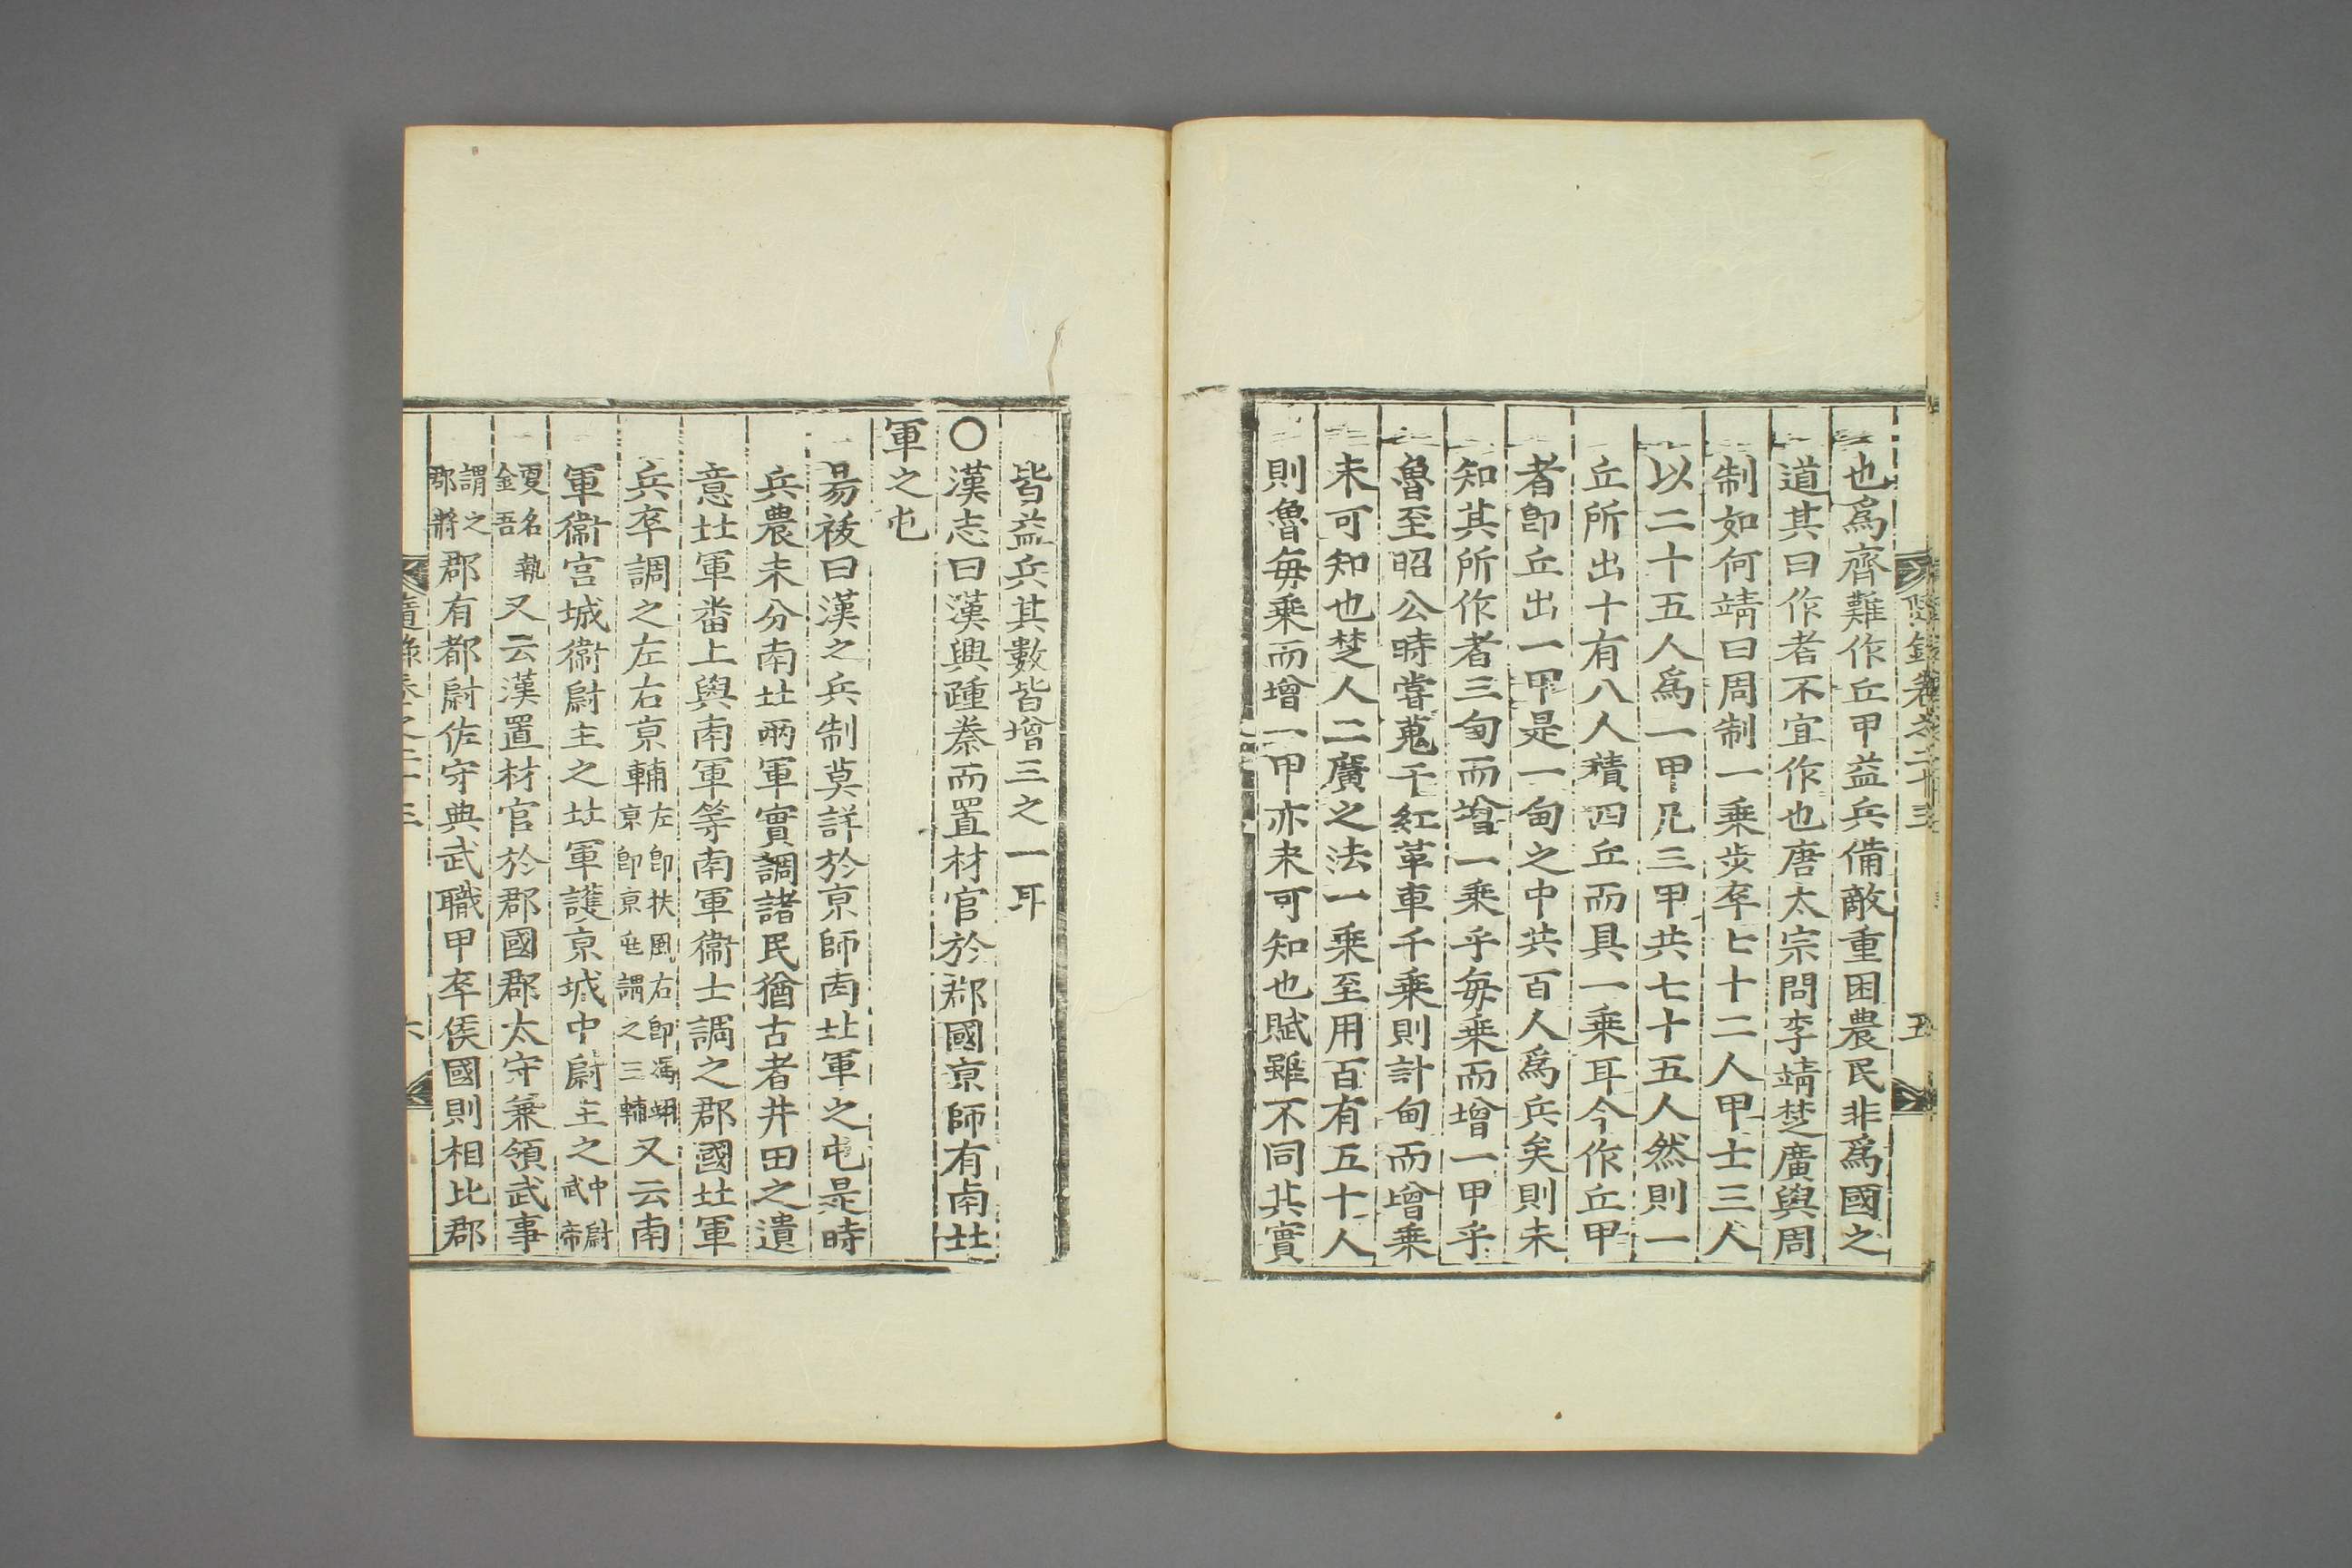 也爲齊難作丘甲益兵備敵重困農民非爲國之
道其曰作者不宜作也唐太宗問李靖楚廣與周
制如何靖曰周制一乘步卒七十二人甲士三人
以二十五人爲一甲凡三甲共七十五人然則一
丘所出十有八人積四丘而具一乘耳今作丘甲
者卽丘出一甲是一甸之中共百人爲兵矣則未
知其所作者三甸而增一乘乎每乘而增一甲乎
魯至昭公時嘗蒐于紅革車千乘則計甸而增乘
未可知也楚人二廣之法一乘至用百有五十人
則魯每乘而增一甲亦未可知也賦雖不同其實
皆益兵其數皆增三之一耳
〇漢志曰漢興踵秦而置材官於郡國京師有南北
軍之屯
易祓曰漢之兵制莫詳於京師南北軍之屯是時
兵農未分南北兩軍實調諸民猶古者井田之遺
意北軍番上與南軍等南軍衞士調之郡國北軍
兵卒調之左右京輔左卽扶風右卽馮翊京卽京兆謂之三輔又云南
軍衞宮城衞尉主之北軍護京城中尉主之中尉武帝
更名執金吾又云漢置材官於郡國郡太守兼領武事
謂之郡將郡有都尉佐守典武職甲卒侯國則相比郡
隨錄卷之二十三
六